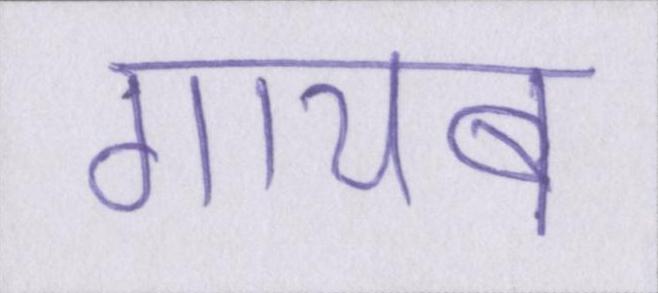 गायब